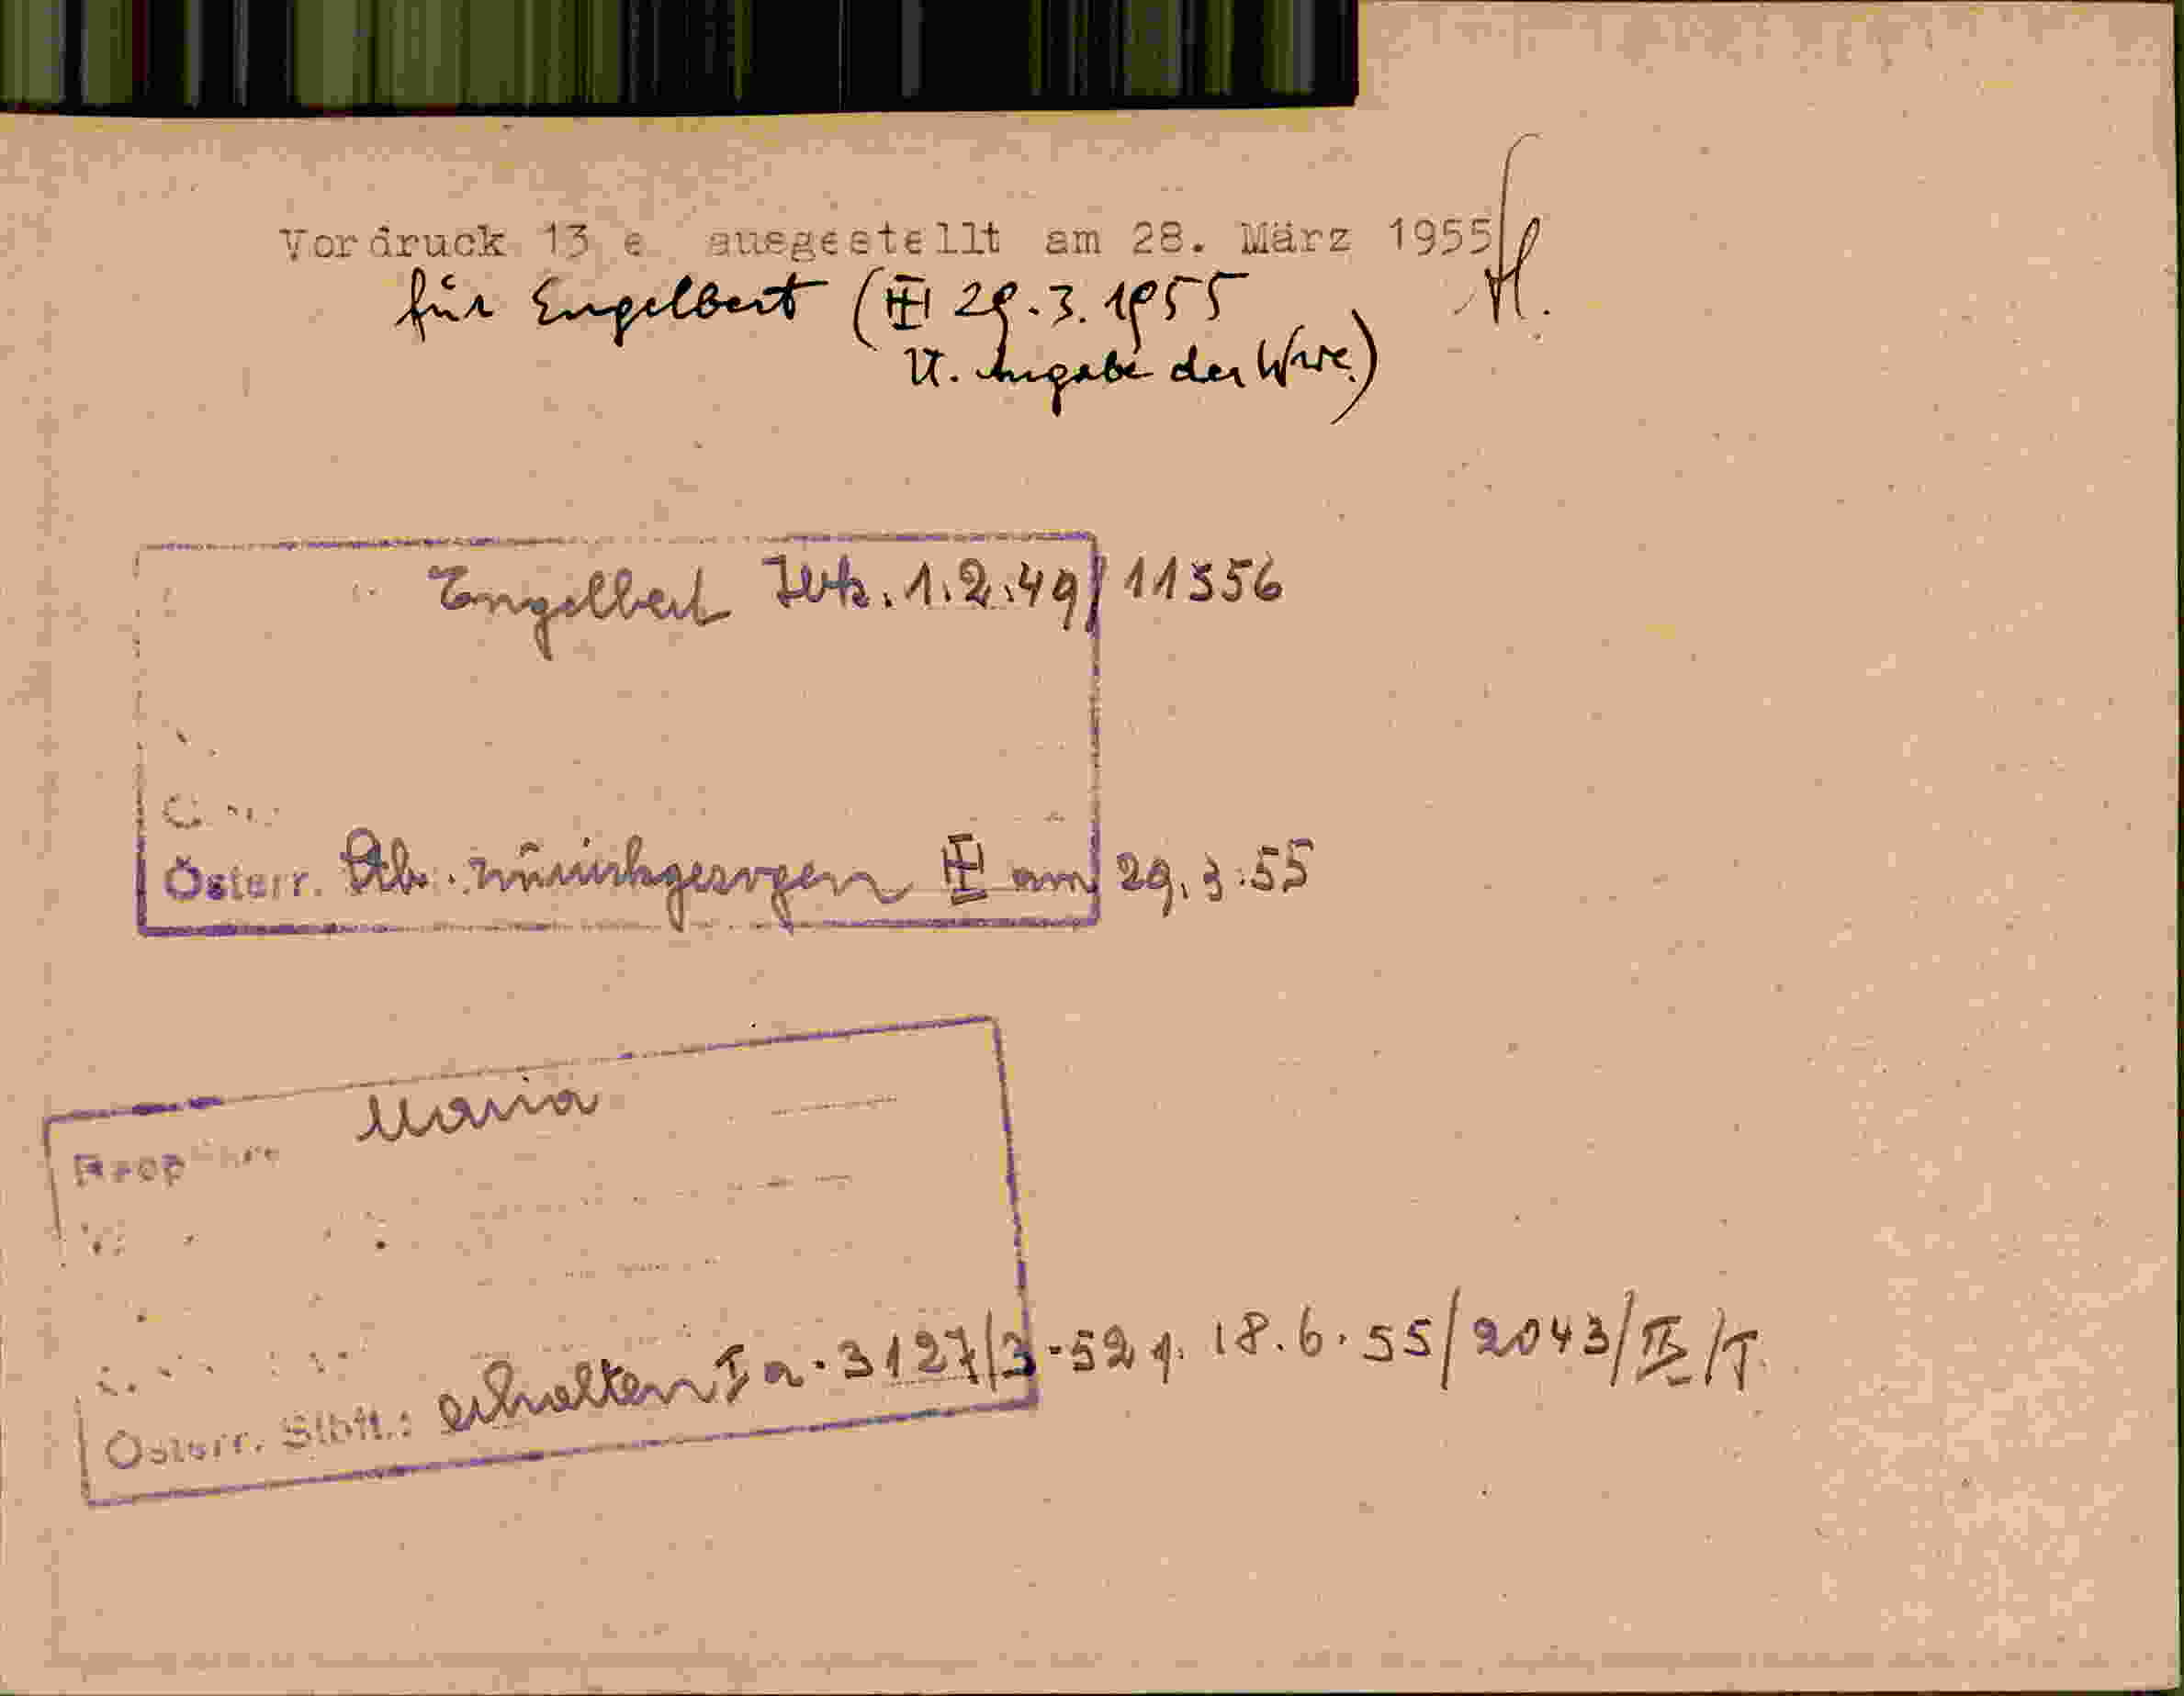 Vordruck 13 e ausgestellt am 28. März 1955
für Engelbert (III 29.3.1955 H.
lt. Angabe der Wwe.)
Engelbert 1.2.49/11556
Österr. Stb. zurückgezogen III am 29.3.55
Maria
Österr. Stbft.: erhalten I a-3127/3-52 v. 18.6.55/2043/IV/T.